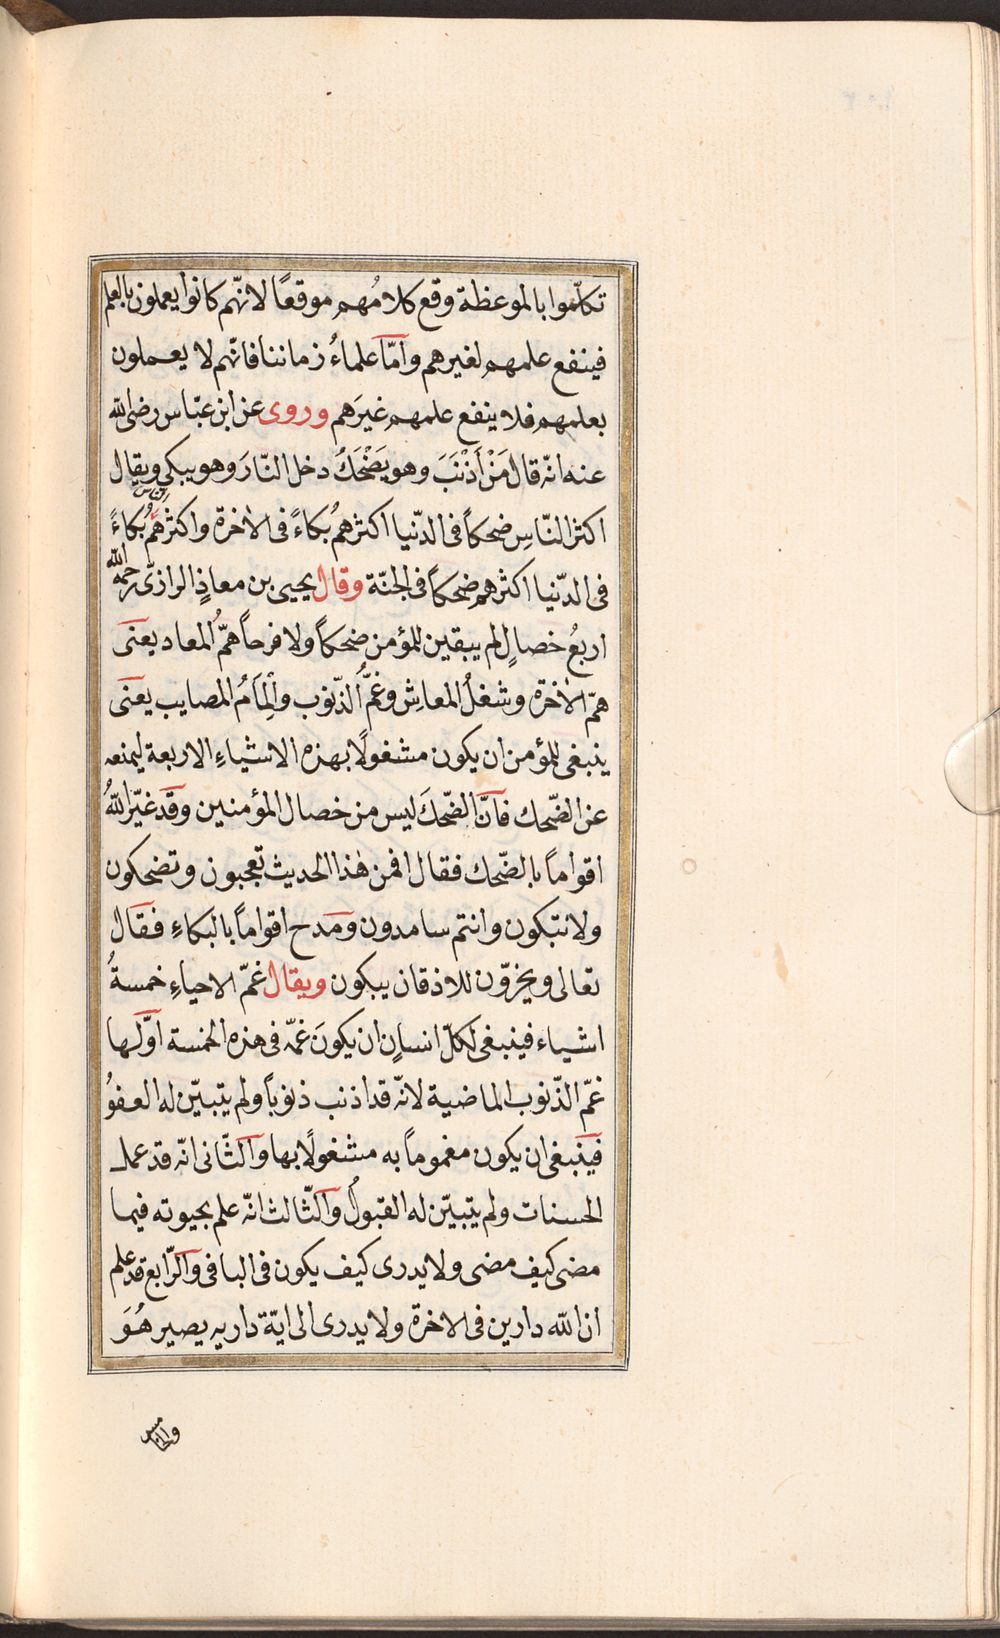 تكلّموا بالموعظة وقع كلامُهم موقعًا لانّهم كانوا يعملون بالعلم
فينفع علمهم لغيرهم وامّا علماءُ زماننا فانّهم لا يعملون
بعلمهم فلا ينفع علمهم غيرَهم وروى عن ابن عبّاس رضى الله
عنه انّه قال مَنْ اَذْنَبَ وهو يَضْحَكُ دخل النّارَ وهو يبكى ويقال
اكثر النّاسِ ضحكاً فى الدّنيا اكثرهُم بُكاءً فى الاخرة واكثرهُم بُكاءً
فى الدّنيا اكثرهم ضحكاً فى الجنّة وقال يحيى بن معاذٍ الرازىّ رحمه الله
اربعُ خصالٍ لم يبقين للمؤمن ضحكاً ولا فرحاً همّ المعاد يعنى
همّ الاخرة وشغلُ المعاشِ وغمُّ الذّنوب واِلْمامُ المصايب يعنى
ينبغى للمؤمن ان يكون مشغولًا بهذه الاشياءِ الاربعة ليمنعه
عن الضّحك فانّ الضّحكَ ليس من خصال المؤمنين وقد غيّر اللهُ
اقواماً بالضّحك فقال افمن هذا الحديث تعجبون وتضحكون
ولا تبكون وانتم سامدون ومدح اقواماً بالبكاءِ فقال
تعالى ويخرّون للاذقان يبكون ويقال غمّ الاحياءِ خمسةُ
اشياء فينبغى لكلّ انسانٍ ان يكونَ غمّه فى هذه الخمسة اوّلها
غمّ الذّنوب الماضية لانّه قد اذنب ذنوباً ولم يتبيّن له العفوُ
فينبغى ان يكون مغموماً به مشغولًا بها والثّانى انّه قد عمل
الحسنات ولم يتبيّن له القبولُ والثّالث انّه علم بحيوته فيما
مضى كيف مضى ولا يدرى كيف يكون فى الباقى والرّابع قد علم
ان الله دارين فى الاخرة ولا يدرى الى ايّة داريه يصير هُوَ
والخامس